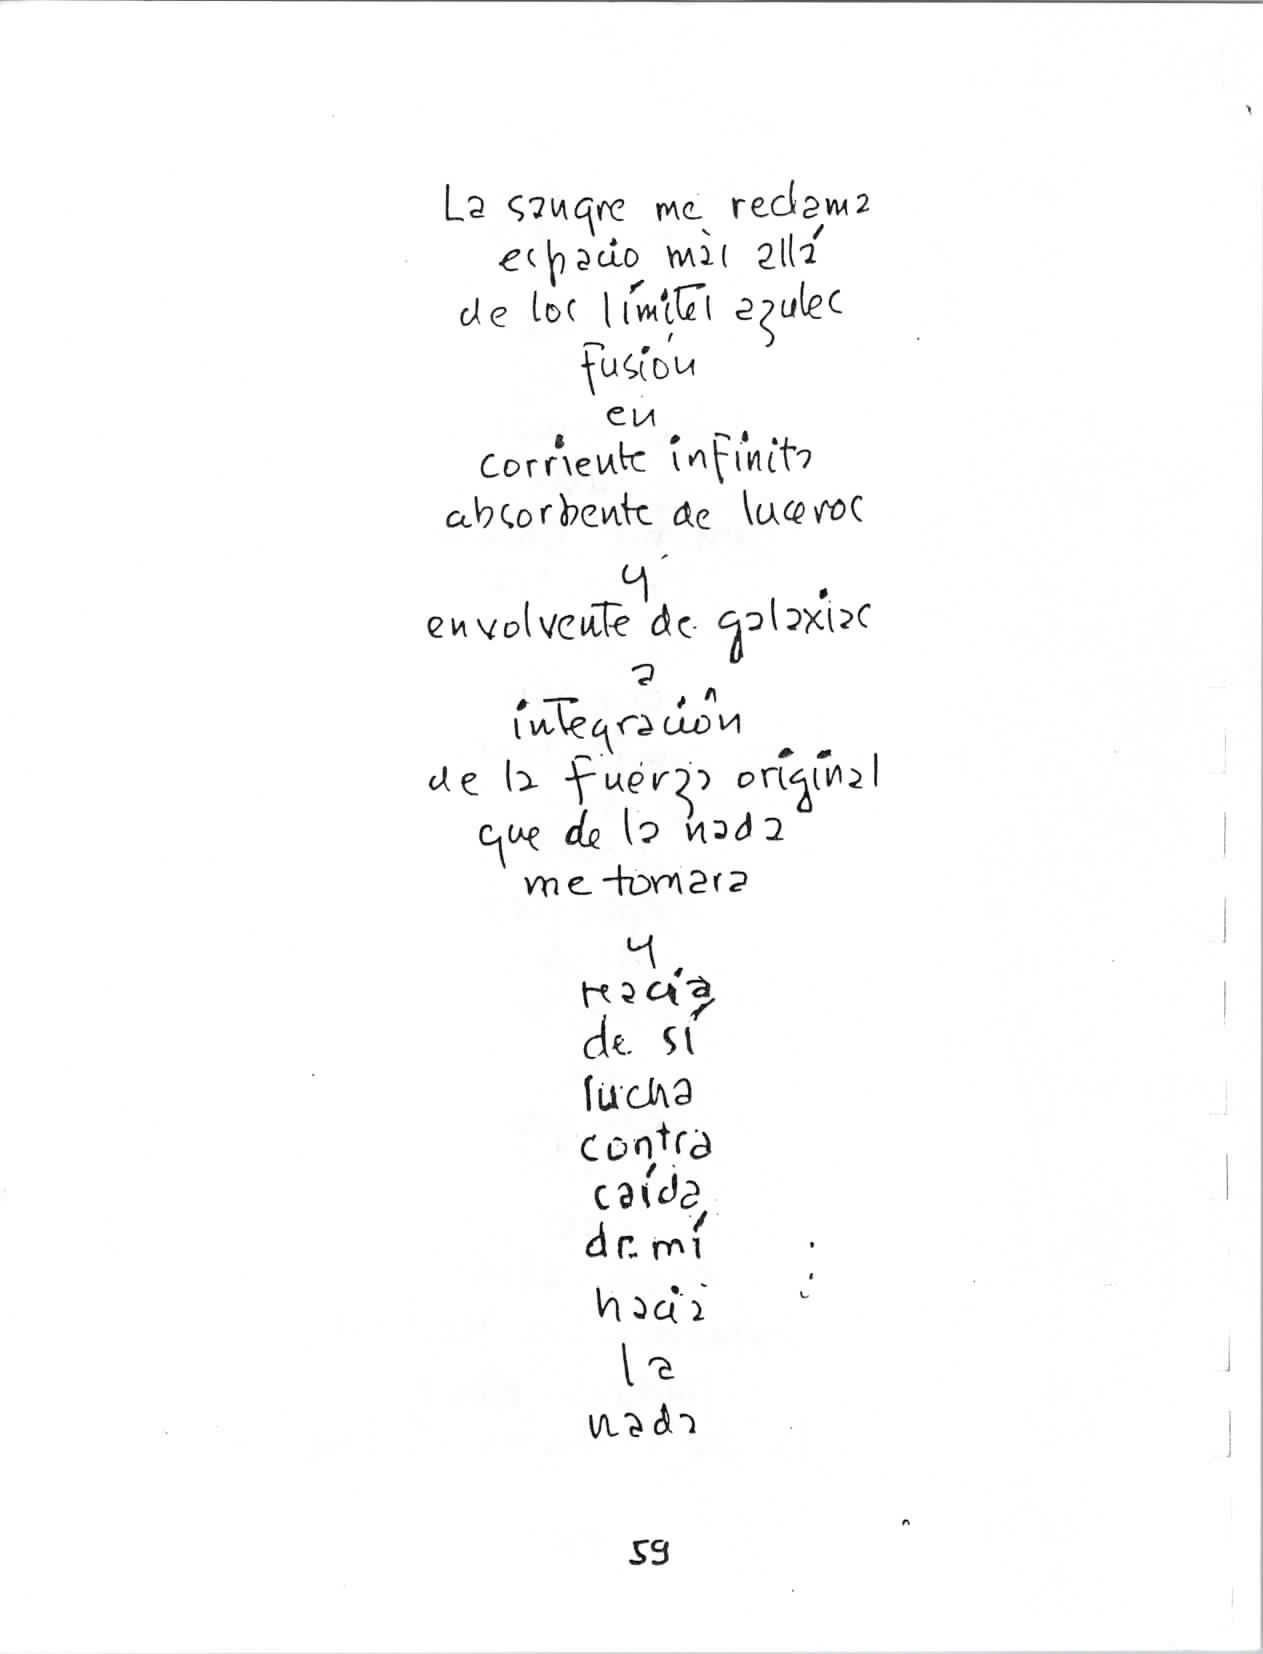 La sangre me reclama
espacio más allá
de los límites azules
fusión
en
corriente infinita
absorbente de luceros
y
envolvente de galaxias
a
integración
de la fuerza original
que de la nada
me tomara
y
reacia
de sí
lucha
contra
caída
de mí
hacia
la
nada
59